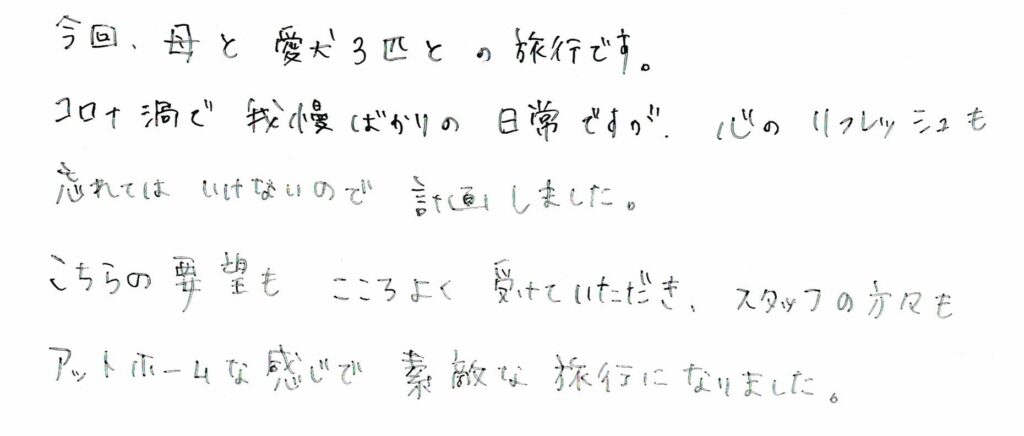 今回、母と愛犬3匹との旅行です。
コロナ渦で我慢ばかりの日常ですが、心のリフレッシュも
忘れてはいけないので計画しました。
こちらの要望もこころよく受けていただき、スタッフの方々も
アットホームな感じで素敵な旅行になりました。